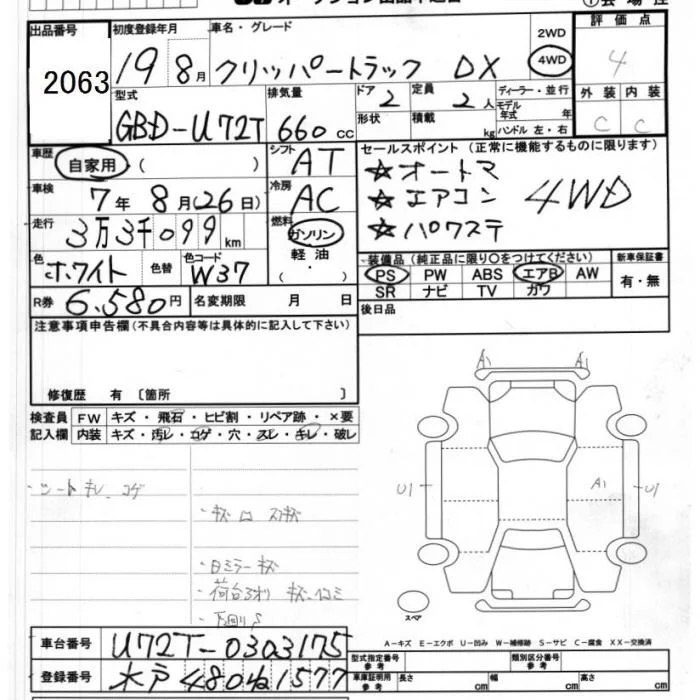 出品番号
2063
初度登録年月
19 8月
車名・グレード
クリッパートラック DX
2WD
4WD
評価点
4
外装 内装
C C
型式
GBD-U72T
排気量
660 cc
ドア
2
定員
2人
形状
積載
kg
ディーラー・並行
モデル年式 年
ハンドル 左・右
車歴
自家用 ( )
シフト
AT
車検
7年 8月(26日)
冷房
AC
走行
3万3千099km
燃料
ガソリン
軽油
( )
色
ホワイト
色替
色コード
W37
R券 6.580円
名変期限 月 日
セールスポイント (正常に機能するものに限ります)
☆オートマ
☆エアコン 4WD
☆パワステ
装備品 (純正品に限り○をつけてください)
PS PW ABS エアB AW
SR ナビ TV カワ
新車保証書
有・無
後日品
注意事項申告欄 (不具合内容等は具体的に記入して下さい)
修復歴 有 〔箇所 〕
検査員記入欄
FW キズ・飛石・ヒビ割・リペア跡・×要
内装 キズ・汚レ・コゲ・穴・スレ・キレ・破レ
・シートキレ、コゲ
・日ミラーキズ
・下回りS
A1 A1
U1 A1 U1
スペア
A-キズ E-エクボ U-凹み W-補修跡 S-サビ C-腐食 XX-交換済
車台番号 U72T-0303175
登録番号 水戸480ね1577
型式指定番号
参考
類別区分番号
参考
車庫証明用
参考
長さ cm 幅 cm 高さ cm